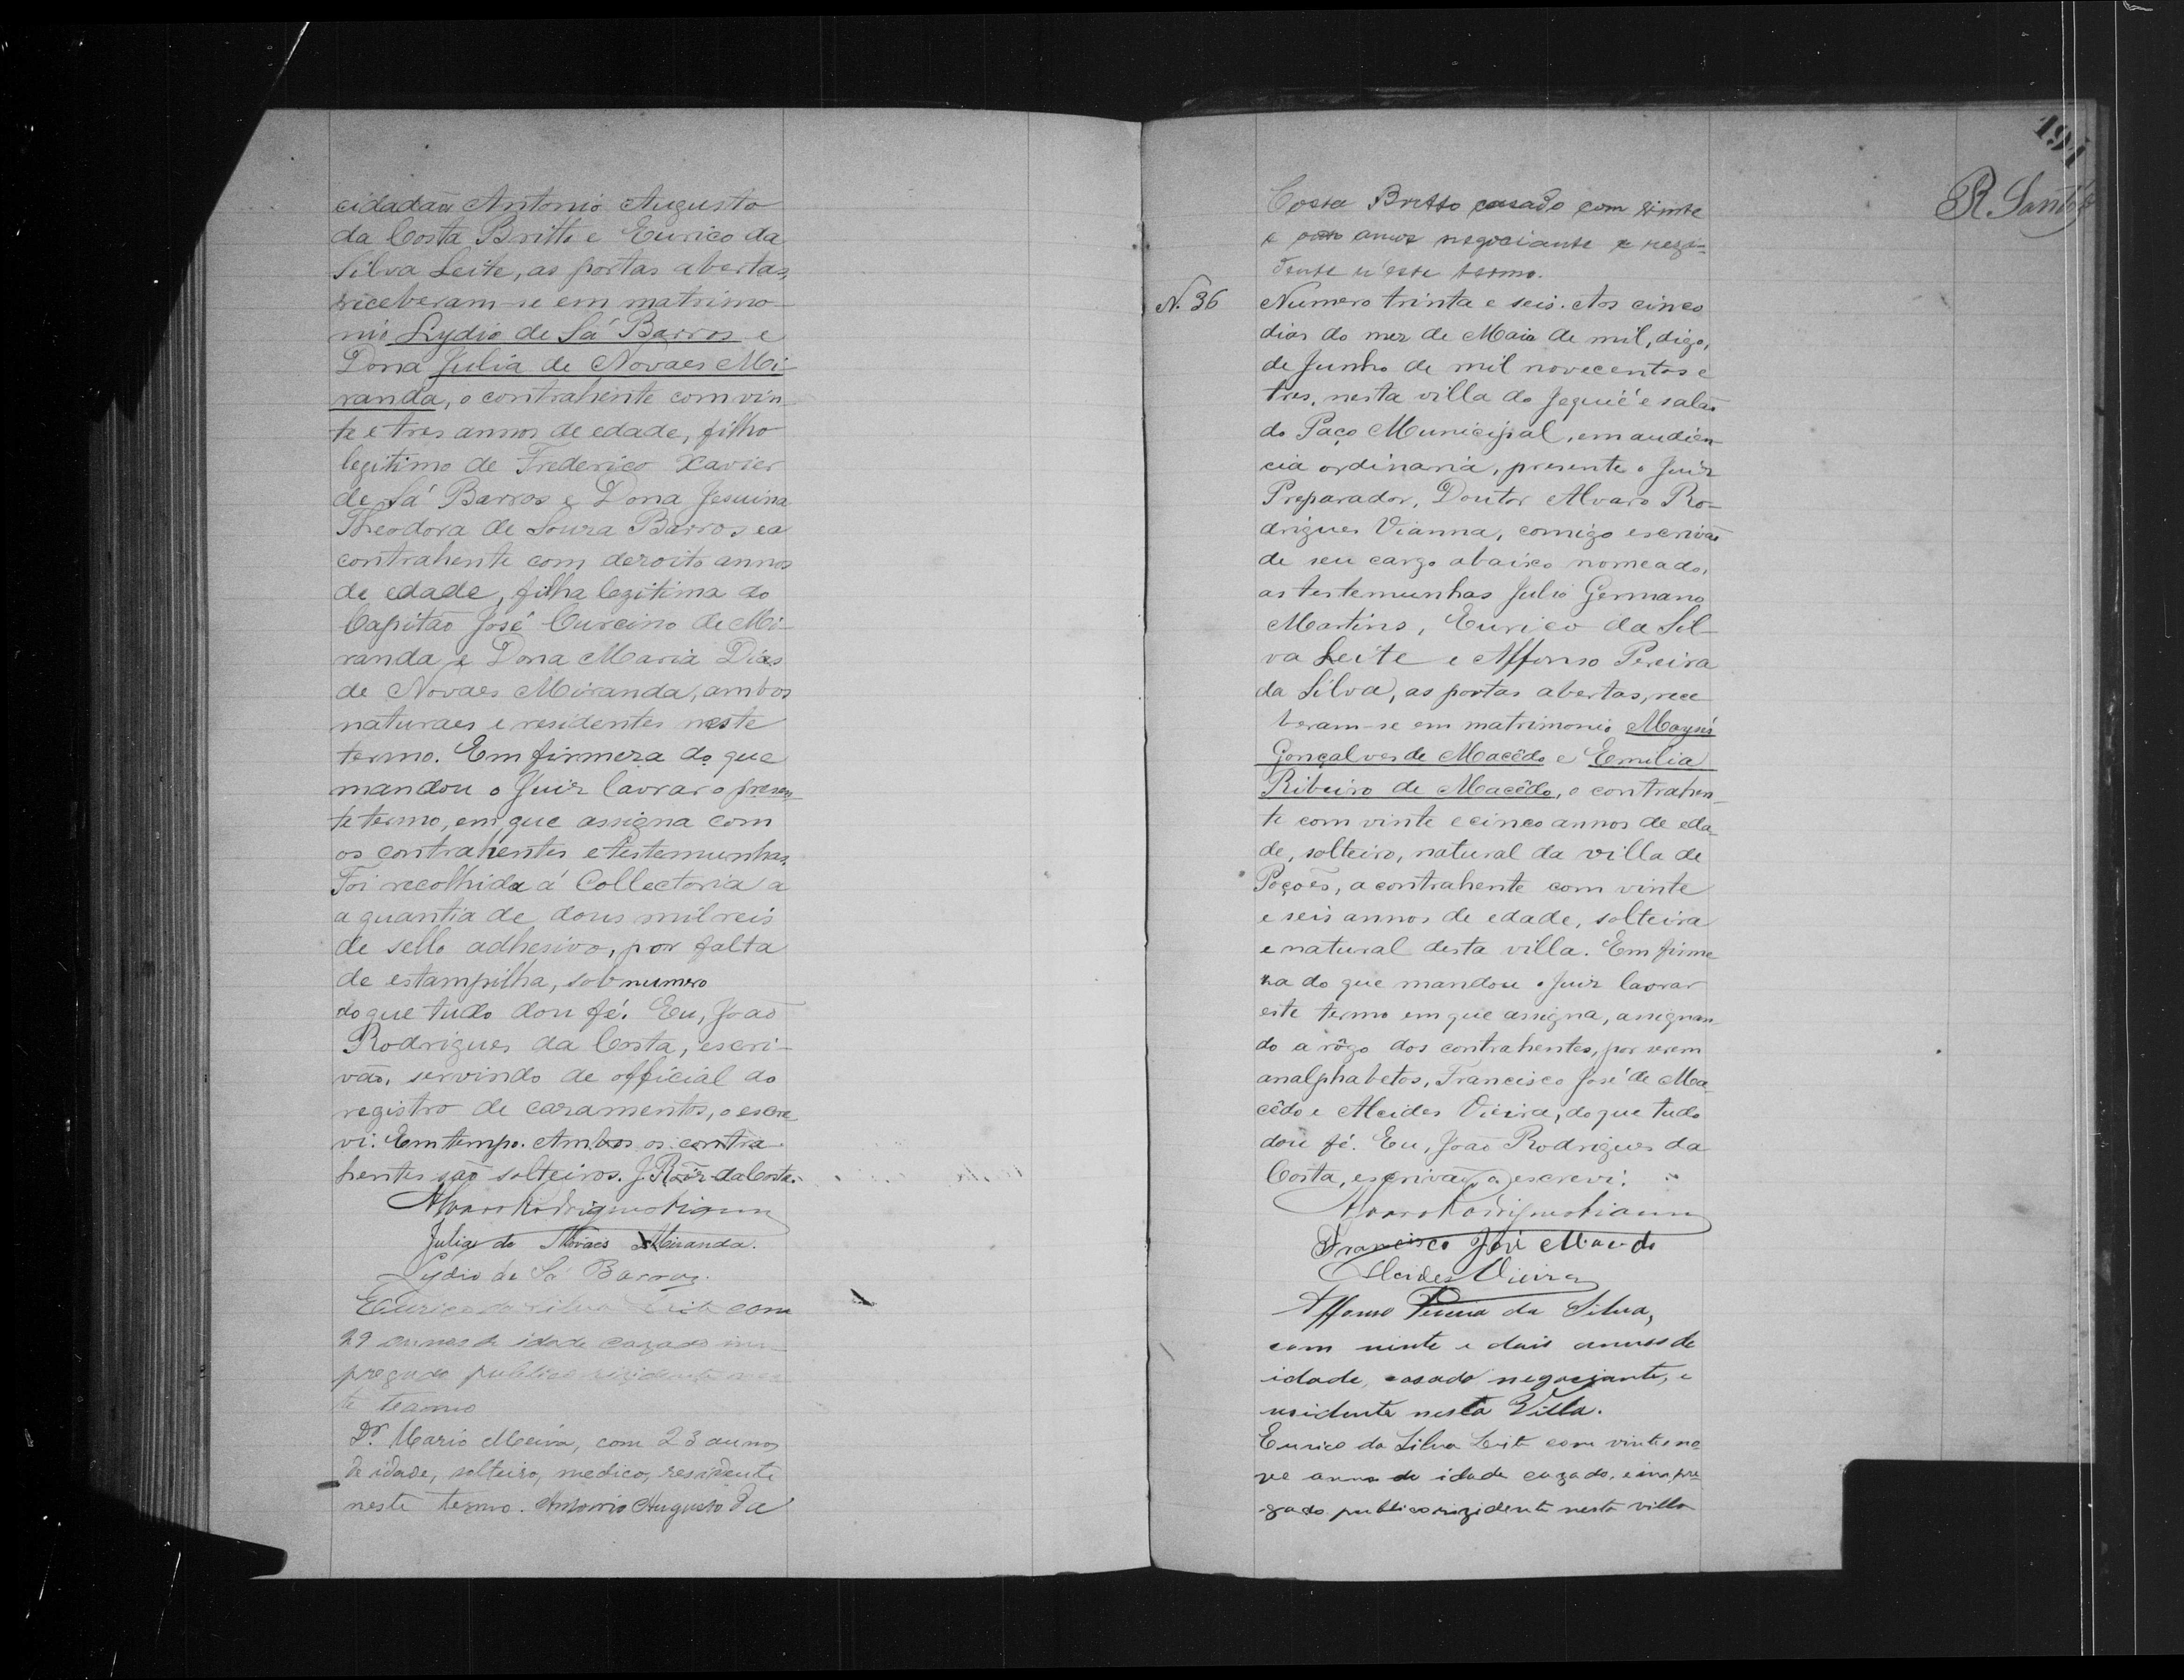 cidadãos Antonio Augusto
da Costa Britto e Eurico da
Silva Leite, as portas abertas,
receberam-se em matrimo-
nio Lydio de Sá Barros e
Dona Julia de Novaes Mi-
randa, o contrahente com vin-
te e tres annos de edade, filho
legitimo de Frederico Xavier
de Sá Barros e Dona Jesuina
Theodora de Souza Barros e a
contrahente com dezoito annos
de edade, filha legitima do
Capitão José Curcino de Mi-
randa e Dona Maria Dias
de Novaes Miranda, ambos
naturaes e residentes neste
termo. Em firmeza do que
mandou o Juiz lavrar o presen-
te termo, em que assigna com
os contrahentes e testemunhas.
Foi recolhida á Collectoria a
a quantia de dous mil reis
de sello adhesivo, por falta
de estampilha, sob numero
do que tudo dou fé. Eu, João
Rodrigues da Costa, escri-
vão, servindo de official do
registro de cazamentos, o escre-
vi. Em tempo. Ambos os contra-
hentes são solteiros. J. Roiz da Costa.
Alvaro Rodrigues Vianna
Julia de Novaes Miranda.
Lydio de Sá Barros.
Eurico da Silva Leite com
29 annos de idade cazado im-
pregado publico rizidente nes-
te teamo
Dr. Mario Meira, com 23 annos
de idade, solteiro, medico, residente
neste termo. Antonio Augusto da
191
R. Santos
Costa Britto casado com vinte
e annos negociante e rezi-
dente n'este termo.
N. 36
Numero trinta e seis. Aos cinco
dias do mez de Maio de mil, digo,
de Junho de mil novecentos e
tres, nesta villa do Jequié e salão
do Paço Municipal, em audien-
cia ordinaria, presente o Juiz
Preparador, Doutor Alvaro Ro-
drigues Vianna, comigo escrivão
de seu cargo abaixo nomeado,
as testemunhas Julio Germano
Martins, Eurico da Sil-
va Leite e Affonso Pereira
da Silva, as portas abertas, rece
beram-se em matrimonio Moysés
Gonçalves de Macêdo e Emilia
Ribeiro de Macêdo, o contrahen-
te com vinte e cinco annos de eda-
de, solteiro, natural da villa de
Poções, a contrahente com vinte
e seis annos de edade, solteira
e natural desta villa. Em firme
za do que mandou o Juiz lavrar
este termo em que assigna, assignan-
do a rôgo dos contrahentes, por serem
analphabetos, Francisco José de Ma
cêdo e Alcides Vieira, do que tudo
dou fé. Eu, João Rodrigues da
Costa, escrivão o escrevi.
Alvaro Rodrigues Vianna
Francisco José Macedo
Alcides Vieira
Affonso Pereira da Silva,
com vinte e dois annos de
idade, casado negociante, e
residente nesta Villa.
Eurico da Silva Leite com vinte no
ve annos de idade cazado, e impre
gado publico rizidente nesta villa